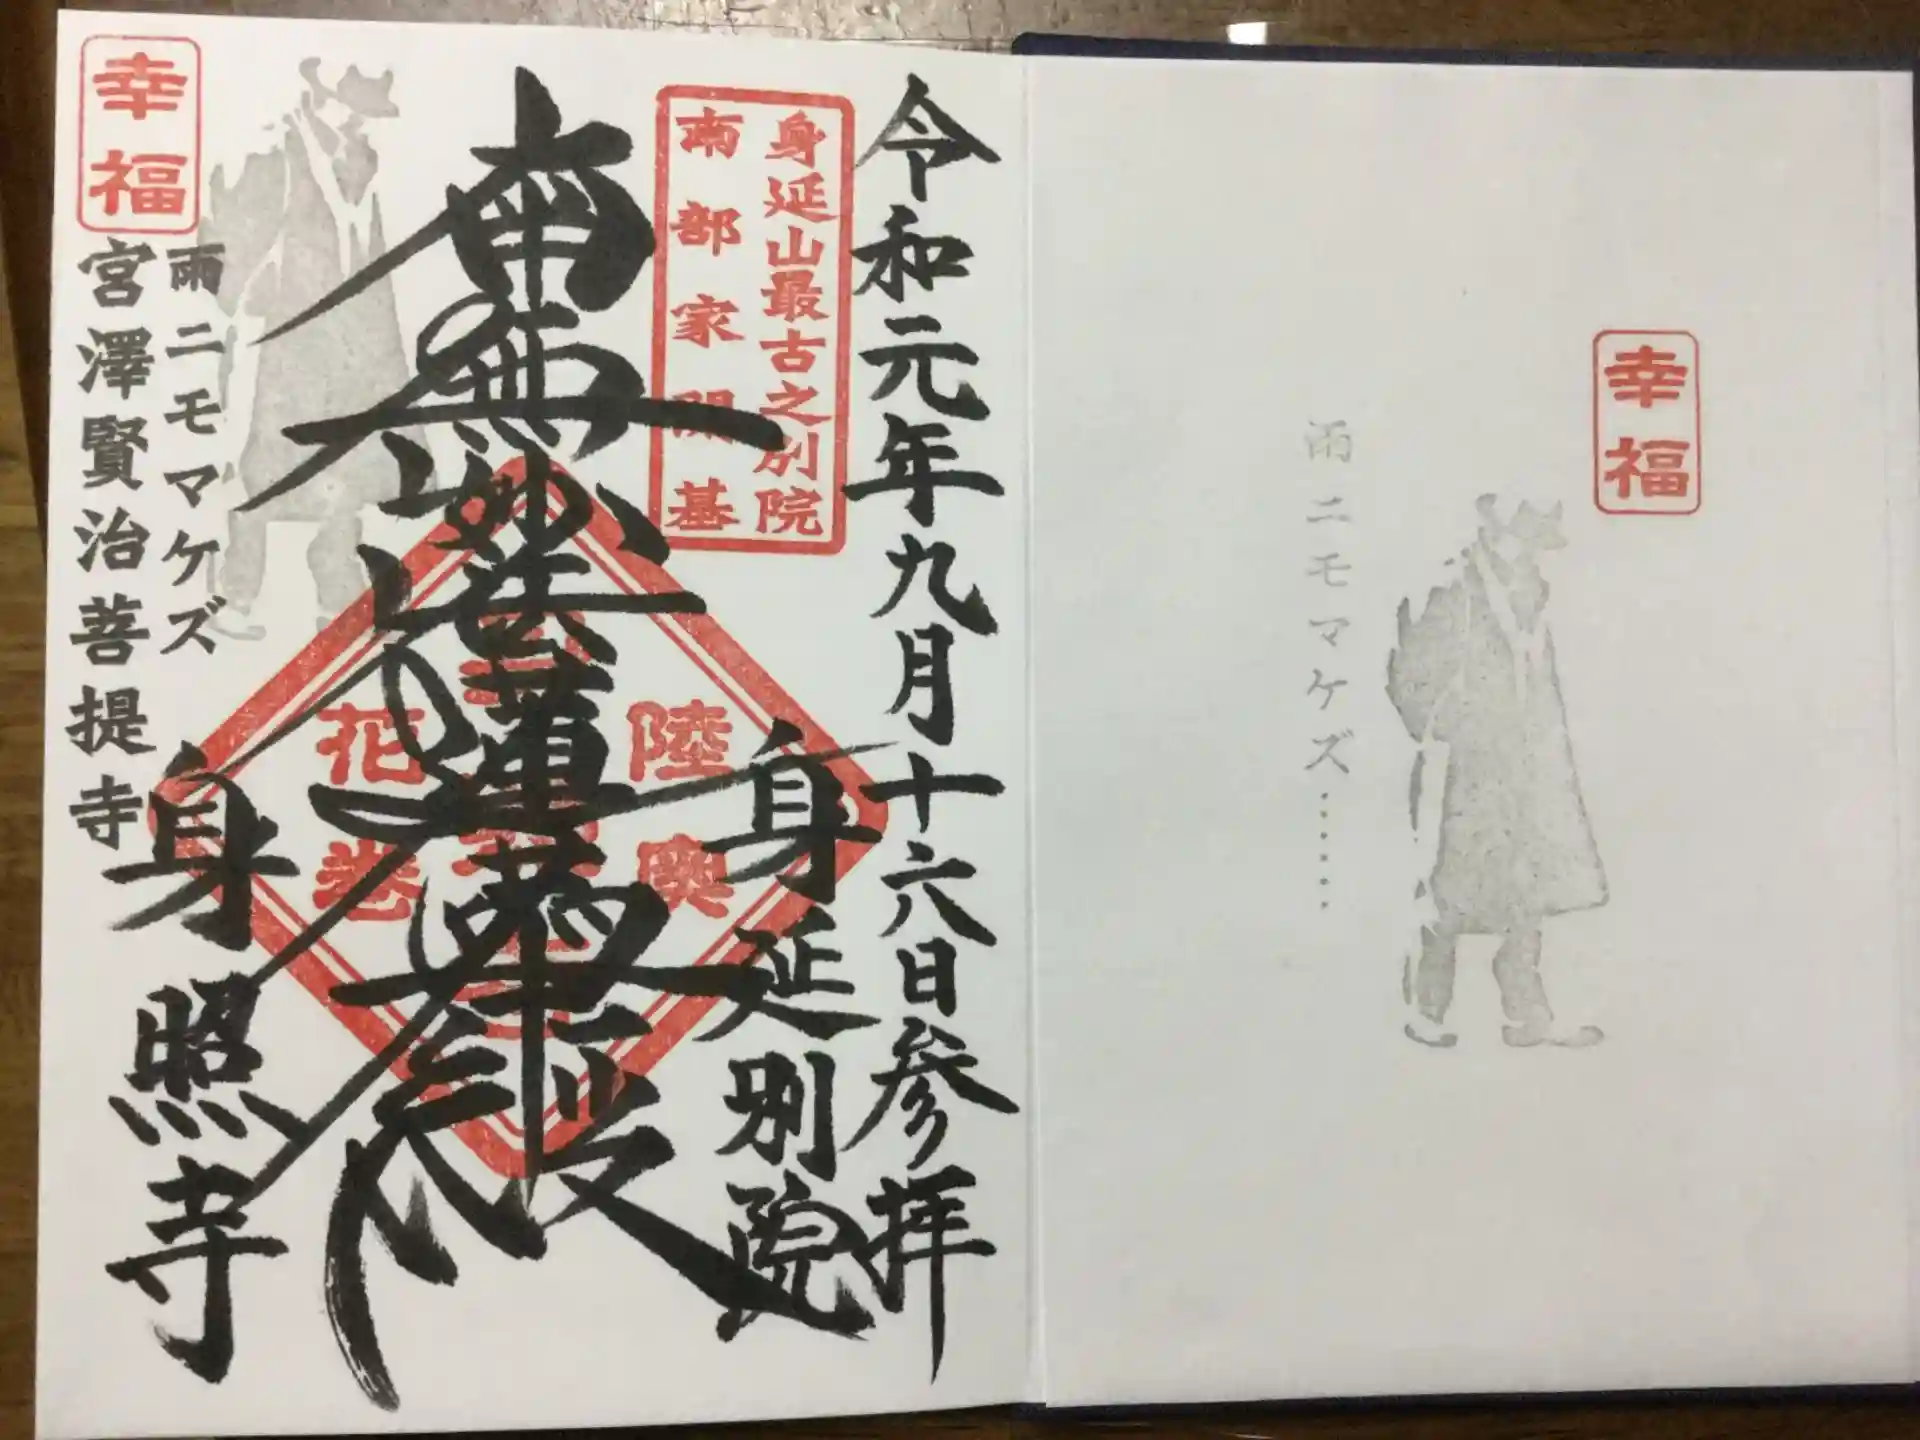 幸福
雨ニモマケズ‥‥‥
令和元年九月十六日参拝
身延山最古之別院
南部家開基
身延別院
南無妙法蓮華経
陸奥
花巻
身照寺
幸福
雨ニモマケズ
宮澤賢治菩提寺